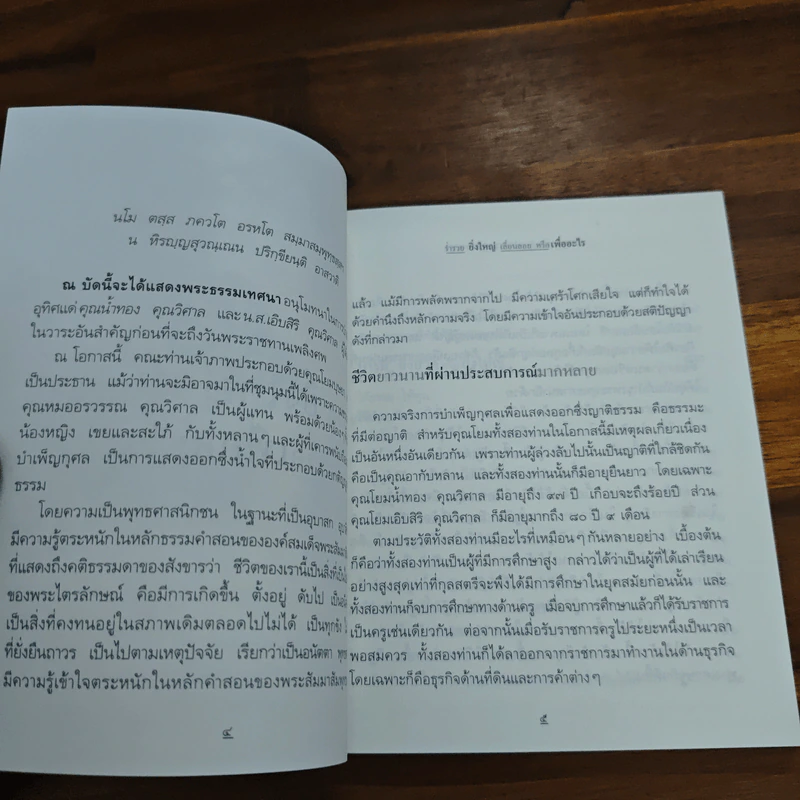 นโม ตสฺส ภควโต อรหโต สมฺมาสมฺพุทฺธสฺส
น หิรญฺญสุวณฺเณน ปริกฺขียนฺติ อาสวาติ
ณ บัดนี้จะได้แสดงพระธรรมเทศนา อนุโมทนาในการ
อุทิศแด่ คุณน้ำทอง คุณวิศาล และ น.ส.เอิบสิริ คุณวิศาล
ในวาระอันสำคัญก่อนที่จะถึงวันพระราชทานเพลิงศพ
ณ โอกาสนี้ คณะท่านเจ้าภาพประกอบด้วยคุณโยม
เป็นประธาน แม้ว่าท่านจะมิอาจมาในที่ชุมนุมนี้ได้เพราะ
คุณหมออรวรรณ คุณวิศาล เป็นผู้แทน พร้อมด้วย
น้องหญิง เขยและสะใภ้ กับทั้งหลานๆ และผู้ที่เคารพ
บำเพ็ญกุศล เป็นการแสดงออกซึ่งน้ำใจที่ประกอบด้วย
ธรรม
โดยความเป็นพุทธศาสนิกชน ในฐานะที่เป็นอุบาสก
มีความรู้ตระหนักในหลักธรรมคำสอนขององค์สมเด็จพระสัมมา
ที่แสดงถึงคติธรรมดาของสังขารว่า ชีวิตของเรานี้เป็นสิ่งที่
ของพระไตรลักษณ์ คือมีการเกิดขึ้น ตั้งอยู่ ดับไป
เป็นสิ่งที่คงทนอยู่ในสภาพเดิมตลอดไปไม่ได้ เป็นทุกขัง
ที่ยั่งยืนถาวร เป็นไปตามเหตุปัจจัย เรียกว่าเป็นอนัตตา
มีความรู้เข้าใจตระหนักในหลักคำสอนของพระสัมมาสัมพุทธ
๔
ร่ำรวย ยิ่งใหญ่ เยี่ยมยอด หรือเพื่ออะไร
แล้ว แม้มีการพลัดพรากจากไป มีความเศร้าโศกเสียใจ แต่ก็ทำใจได้
ด้วยคำนึงถึงหลักความจริง โดยมีความเข้าใจอันประกอบด้วยสติปัญญา
ดังที่กล่าวมา
ชีวิตยาวนานที่ผ่านประสบการณ์มากหลาย
ความจริงการบำเพ็ญกุศลเพื่อแสดงออกซึ่งญาติธรรม คือธรรมะ
ที่มีต่อญาติ สำหรับคุณโยมทั้งสองท่านในโอกาสนี้มีเหตุผลเกี่ยวเนื่อง
เป็นอันหนึ่งอันเดียวกัน เพราะท่านผู้ล่วงลับไปนั้นเป็นญาติที่ใกล้ชิดกัน
คือเป็นคุณอากับหลาน และทั้งสองท่านนั้นก็มีอายุยืนยาว โดยเฉพาะ
คุณโยมน้ำทอง คุณวิศาล มีอายุถึง ๙๗ ปี เกือบจะถึงร้อยปี ส่วน
คุณโยมเอิบสิริ คุณวิศาล ก็มีอายุมากถึง ๘๐ ปี ๙ เดือน
ตามประวัติทั้งสองท่านมีอะไรที่เหมือนๆ กันหลายอย่าง เบื้องต้น
ก็คือว่าทั้งสองท่านเป็นผู้ที่มีการศึกษาสูง กล่าวได้ว่าเป็นผู้ที่ได้เล่าเรียน
อย่างสูงสุดเท่าที่กุลสตรีจะพึงได้มีการศึกษาในยุคสมัยก่อนนั้น และ
ทั้งสองท่านก็จบการศึกษาทางด้านครู เมื่อจบการศึกษาแล้วก็ได้รับราชการ
เป็นครูเช่นเดียวกัน ต่อจากนั้นเมื่อรับราชการครูไประยะหนึ่งเป็นเวลา
พอสมควร ทั้งสองท่านก็ได้ลาออกจากราชการมาทำงานในด้านธุรกิจ
โดยเฉพาะก็คือธุรกิจด้านที่ดินและการค้าต่างๆ
๕